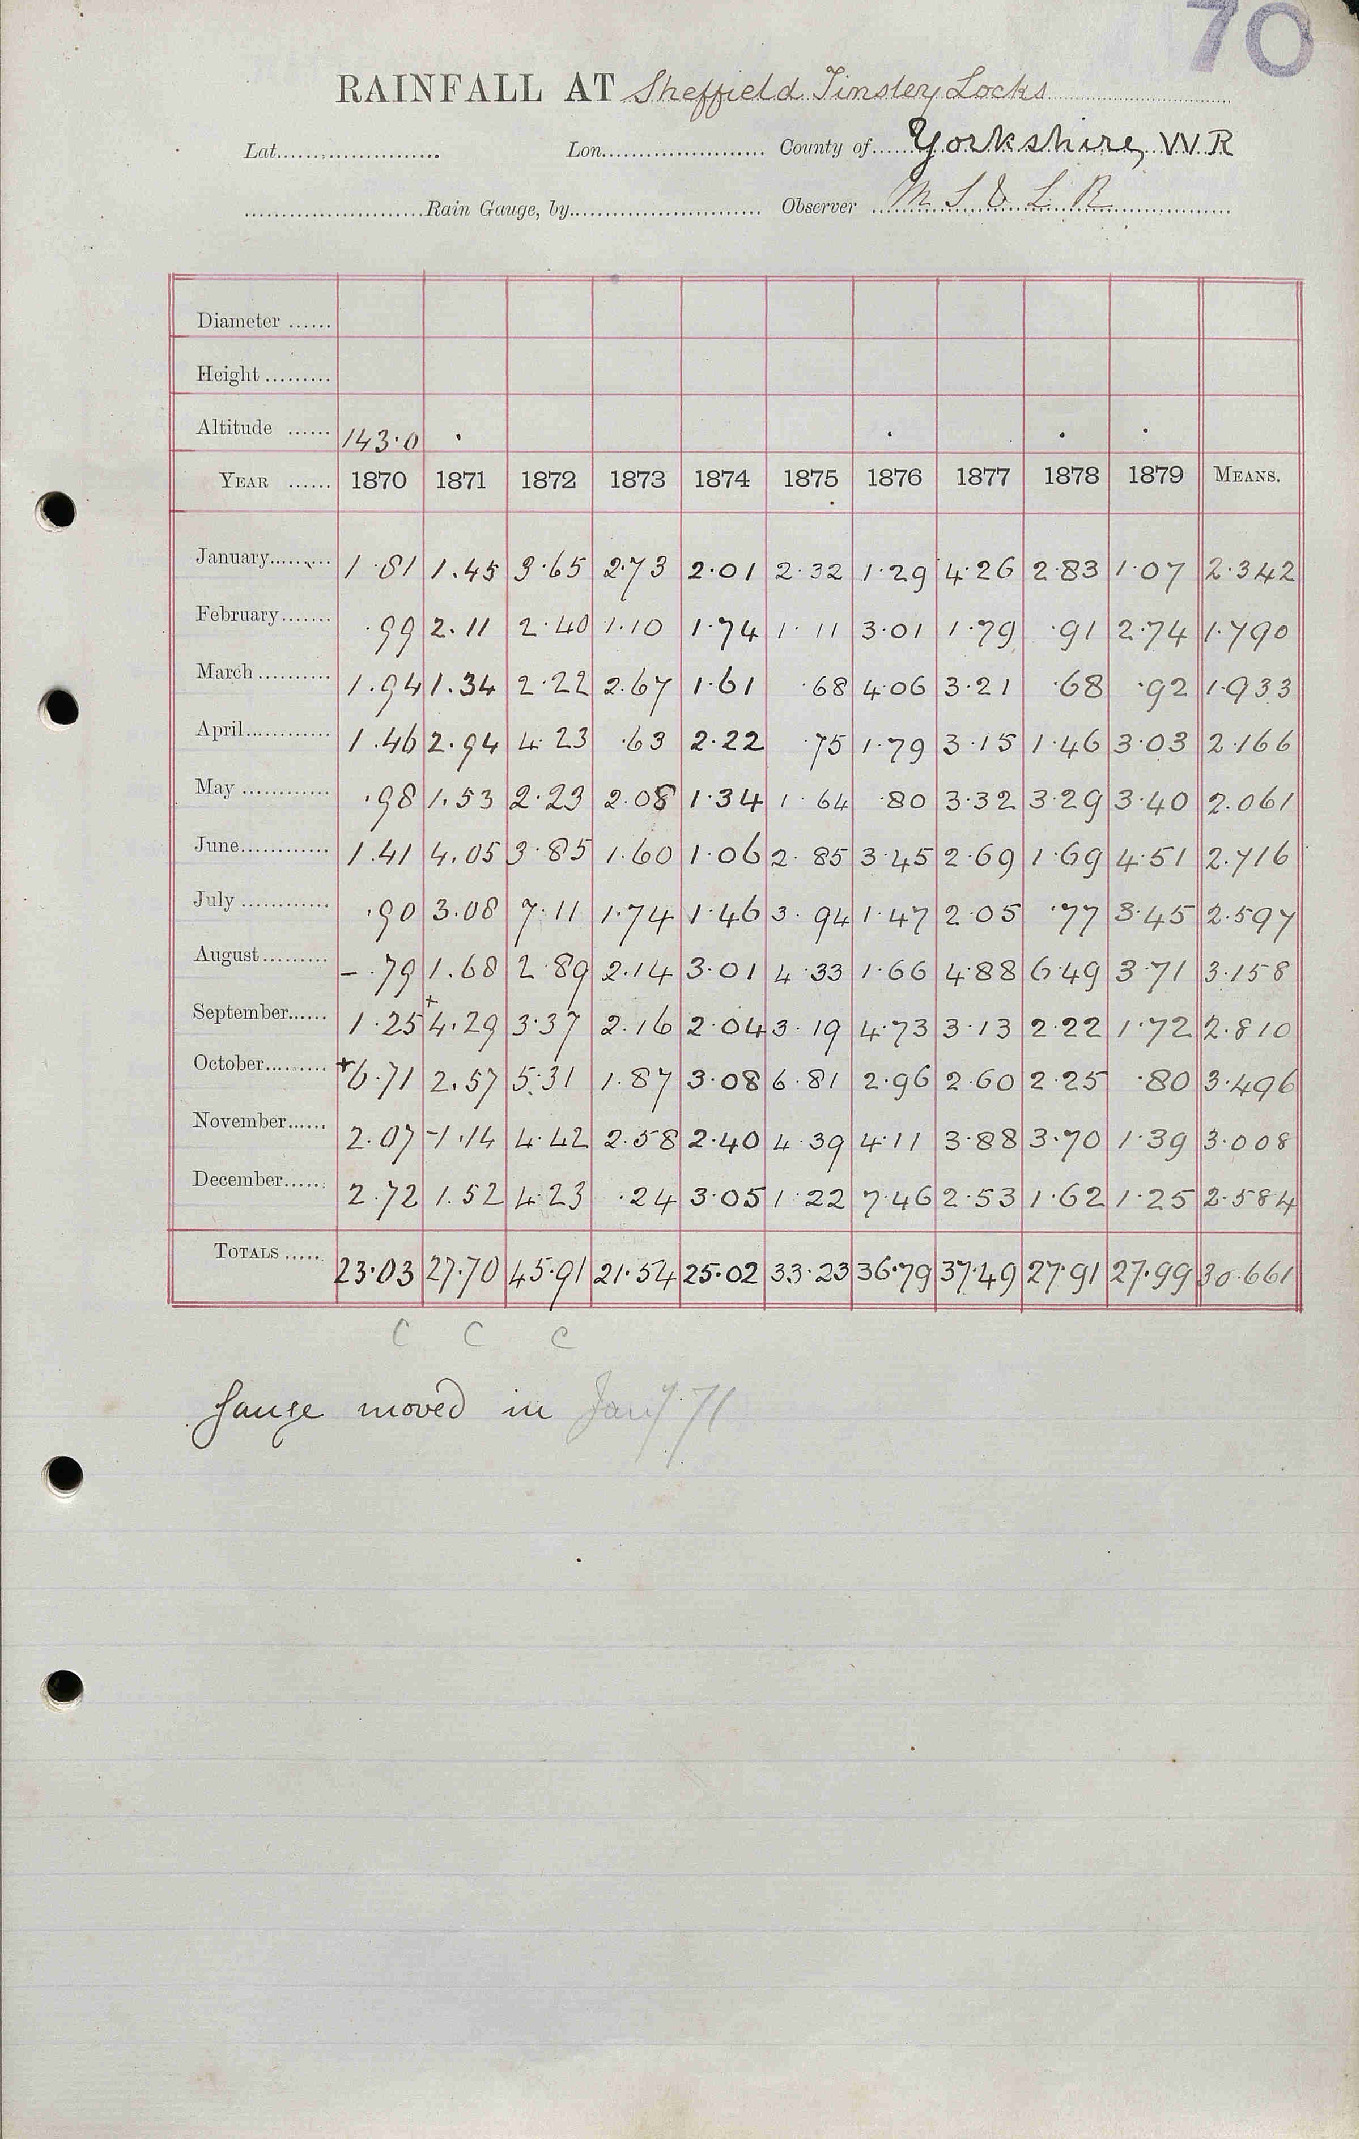 70
RAINFALL AT Sheffield Tinsley Locks
Lat. Lon. County of Yorkshire, W R
Rain Gauge, by Observer M S & L R
Diameter
Height
Altitude 143·0
YEAR 1870 1871 1872 1873 1874 1875 1876 1877 1878 1879 MEANS.
January 1·81 1.45 3·65 2·73 2·01 2·32 1·29 4·26 2·83 1·07 2·342
February ·99 2.11 2·40 1·10 1·74 1·11 3·01 1·79 ·91 2·74 1·790
March 1.94 1.34 2·22 2·67 1·61 ·68 4·06 3·21 ·68 ·92 1·933
April 1.46 2.94 4·23 ·63 2·22 ·75 1·79 3·15 1·46 3·03 2·166
May ·98 1.53 2·23 2·08 1·34 1·64 ·80 3·32 3·29 3·40 2·061
June 1.41 4.05 3·85 1·60 1·06 2·85 3·45 2·69 1·69 4·51 2·716
July ·90 3.08 7·11 1·74 1·46 3·94 1·47 2·05 ·77 3·45 2·597
August - ·79 1.68 2·89 2·14 3·01 4·33 1·66 4·88 6·49 3·71 3·158
September 1·25 +4.29 3·37 2·16 2·04 3·19 4·73 3·13 2·22 1·72 2·810
October +6·71 2.57 5·31 1·87 3·08 6·81 2·96 2·60 2·25 ·80 3·496
November 2.07 -1.14 4·42 2·58 2·40 4·39 4·11 3·88 3·70 1·39 3·008
December 2.72 1.52 4·23 ·24 3·05 1·22 7·46 2·53 1·62 1·25 2·584
TOTALS 23·03 27·70 45·91 21·54 25·02 33·23 36·79 37·49 27·91 27·99 30·661
C C C
Gauge moved in Jany 71